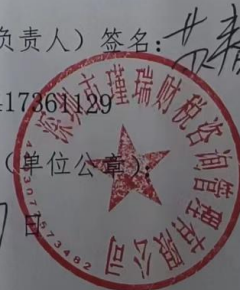 负责人）签名：
417361129
（单位公章）：
日
深圳市瑾瑞财税咨询管理有限公司